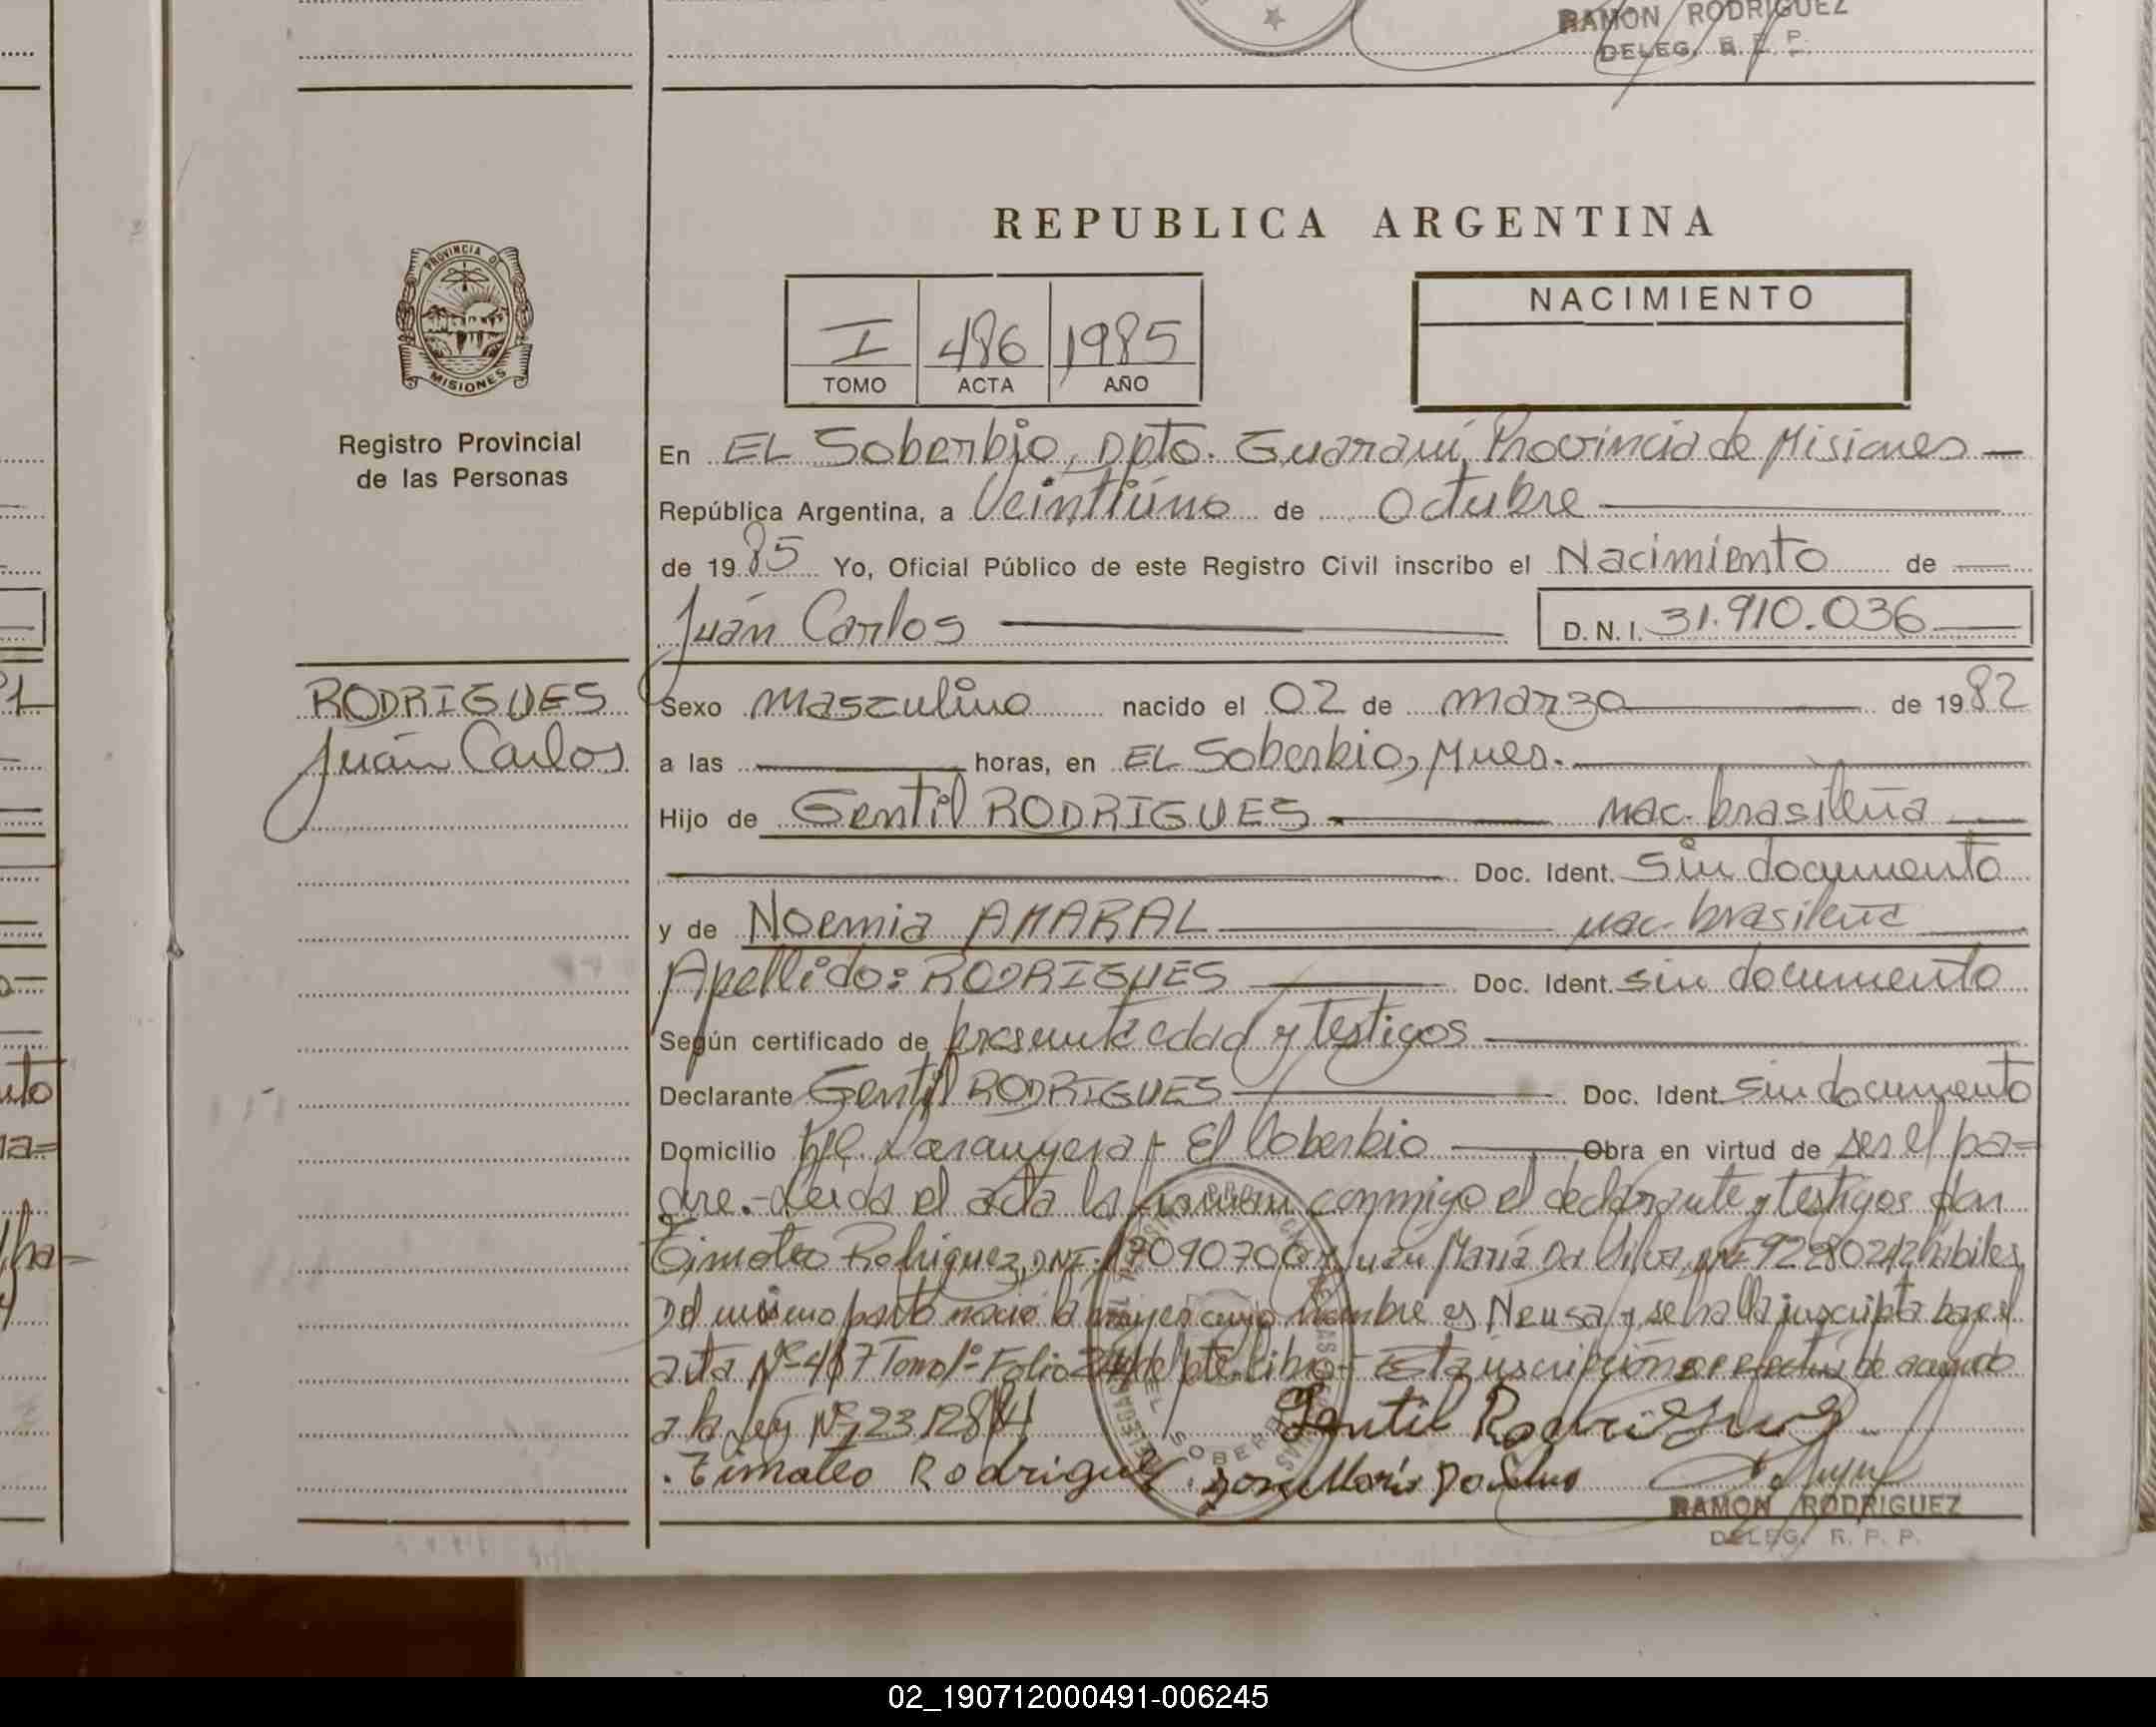 RAMON RODRIGUEZ
DELEG. R. P. P.
REPUBLICA ARGENTINA
PROVINCIA DE
MISIONES
Registro Provincial
de las Personas
I 486 1985
TOMO ACTA AÑO
NACIMIENTO
En EL Soberbio, Dpto. Guaraní, Provincia de Misiones —
República Argentina, a Veintiúno de Octubre
de 1985 Yo, Oficial Público de este Registro Civil inscribo el Nacimiento de
Juán Carlos D.N.I. 31.910.036
RODRIGUES
Juán Carlos
Sexo masculino nacido el 02 de marzo de 1982
a las horas, en EL Soberbio, Mnes.
Hijo de Gentil RODRIGUES nac. brasileña
Doc. Ident. Sin documento
y de Noemia AMARAL nac. brasileña
Apellido: RODRIGUES Doc. Ident. sin documento
Según certificado de presunta edad y testigos
Declarante Gentil RODRIGUES Doc. Ident. Sin documento
Domicilio El Soberbio Obra en virtud de ser el pa=
dre.- Leida el acta la firman conmigo el declarante y testigos don
Timoteo Rodriguez, DNI. María Da Silva, hábiles
Del mismo parto nació la mujer cuyo nombre es Neusa y se halla inscripta bajo el
acta Nº 487 Tomo 1º Folio del pte. Libro - Esta inscripción se efectuó de acuerdo
a la Ley Nº 23.128/84
Gentil Rodrigues
Timoteo Rodriguez
RAMON RODRIGUEZ
DELEG. R. P. P.
02_190712000491-006245